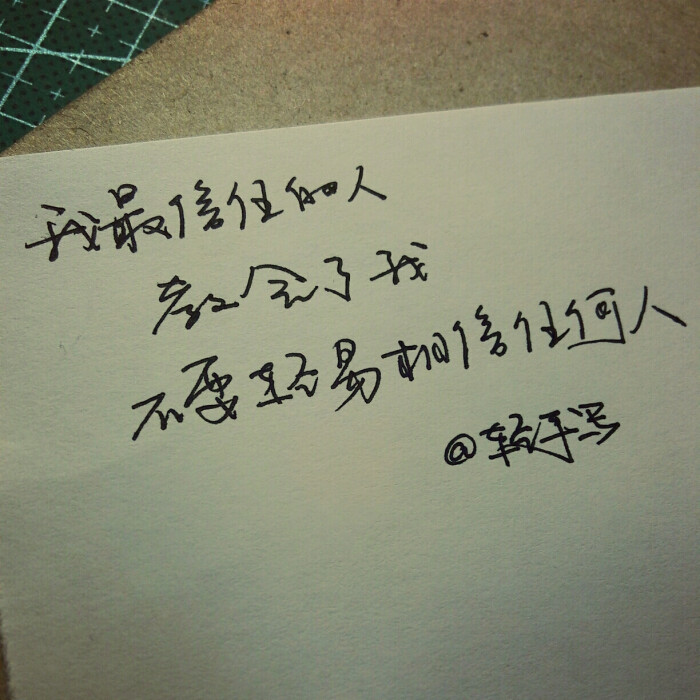 我最信任的人
教会了我
不要轻易相信任何人
@轻手写